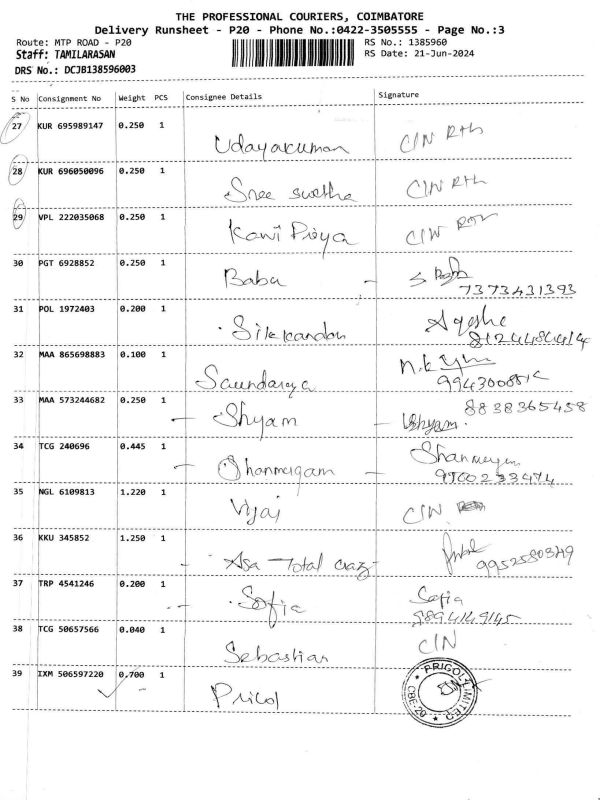 THE PROFESSIONAL COURIERS, COIMBATORE
Delivery Runsheet - P20 - Phone No.:0422-3505555 - Page No.:3
Route: MTP ROAD - P20 RS No.: 1385960
Staff: TAMILARASAN RS Date: 21-Jun-2024
DRS No.: DCJB138596003
S No Consignment No Weight PCS Consignee Details Signature
27 KUR 695989147 0.250 1 Udayakumar C/N RTH
28 KUR 696050096 0.250 1 Sree swetha C/N RTH
29 VPL 222035068 0.250 1 Kawi Priya C/N RTH
30 PGT 6928852 0.250 1 Babu - S
7373431393
31 POL 1972403 0.200 1 Sikkandar
32 MAA 865698883 0.100 1 Saundarya
33 MAA 573244682 0.250 1 - Shyam - Shyam.
8838365458
34 TCG 240696 0.445 1 - Shanmugam - Shanmugam
35 NGL 6109813 1.220 1 Vijai C/N
36 KKU 345852 1.250 1 - Asa Total craz -
9952580349
37 TRP 4541246 0.200 1 - Sofia Sofia
9894149145
38 TCG 50657566 0.040 1 Sebastian C/N
39 IXM 506597220 0,700 1 Pricol
PRICOL LIMITED
CBE-20